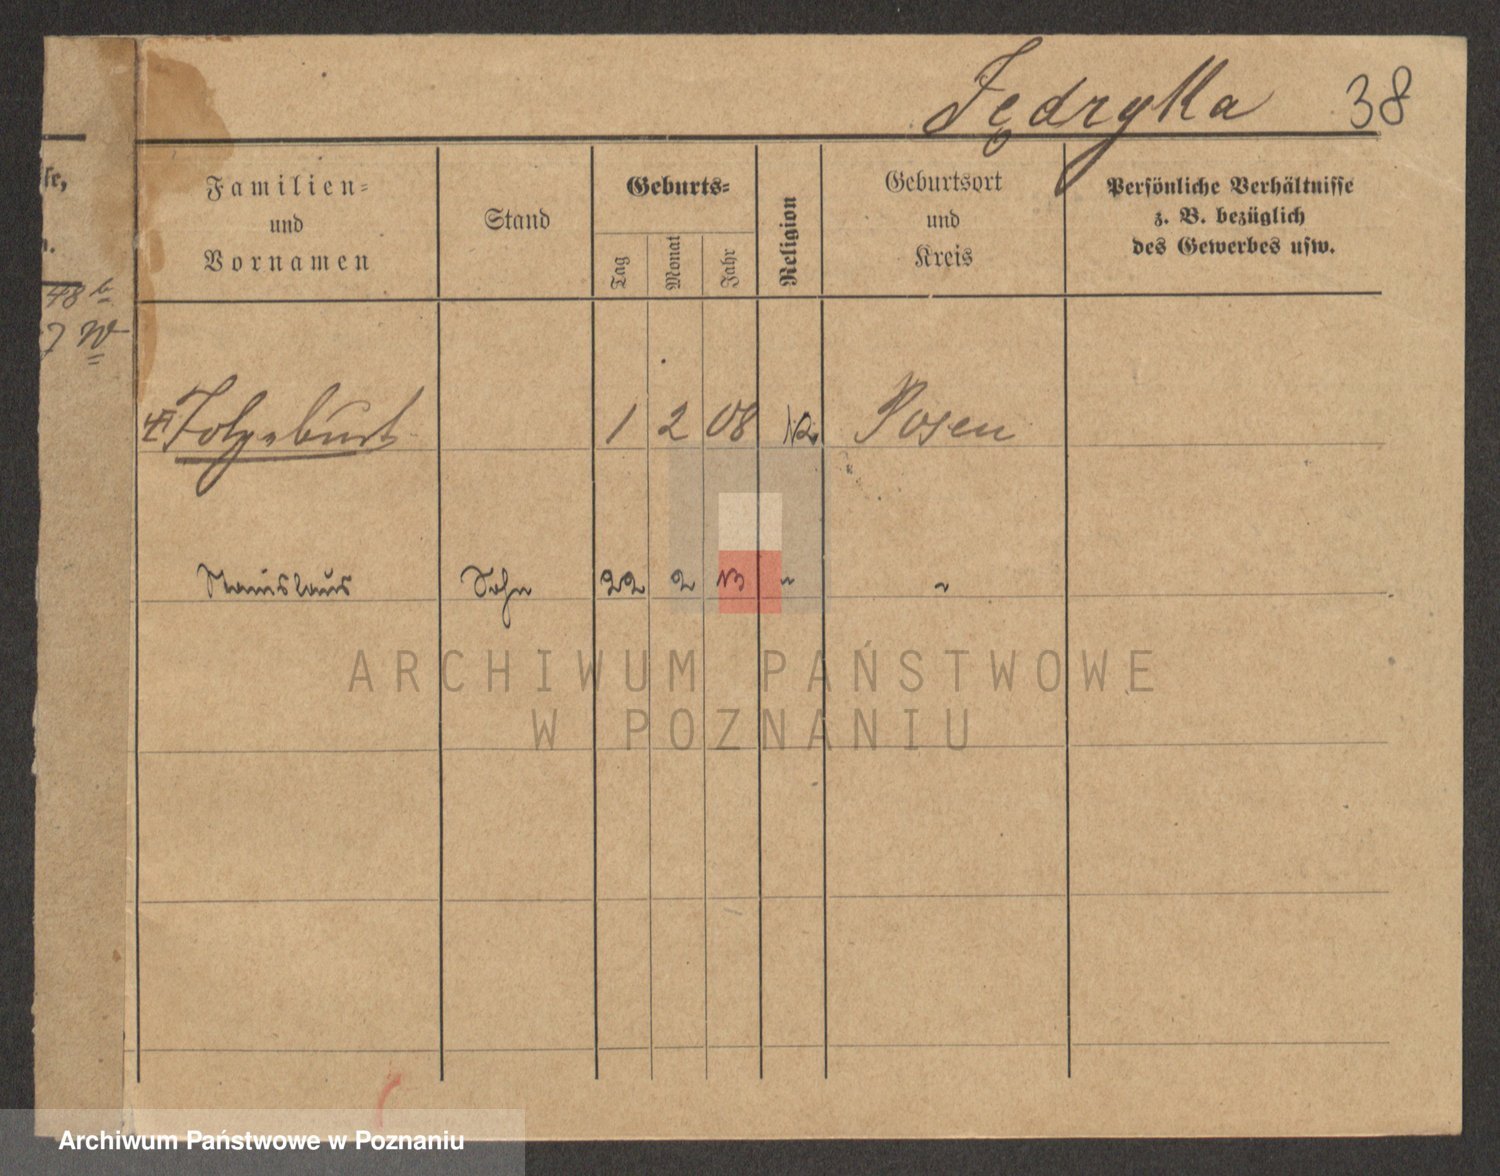 Jędryka 38
ſſe,
n.
48 b
7 W
Familien-
und
Vornamen
Stand
Geburts-
Tag
Monat
Jahr
Religion
Geburtsort
und
Kreis
Persönliche Verhältnisse
z. B. bezüglich
des Gewerbes usw.
1 2 08 Posen
Stanislaus Sohn 22 2 13 " "
ARCHIWUM PAŃSTWOWE
W POZNANIU
Archiwum Państwowe w Poznaniu